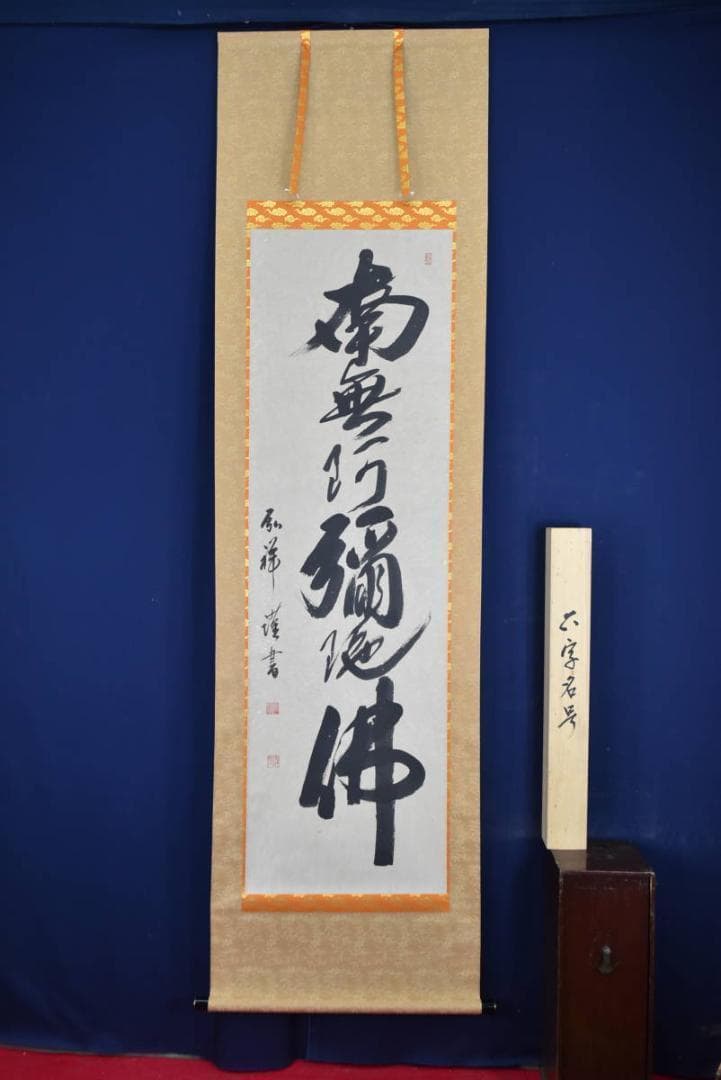 南無阿彌陀佛
弘祥 謹書
六字名号